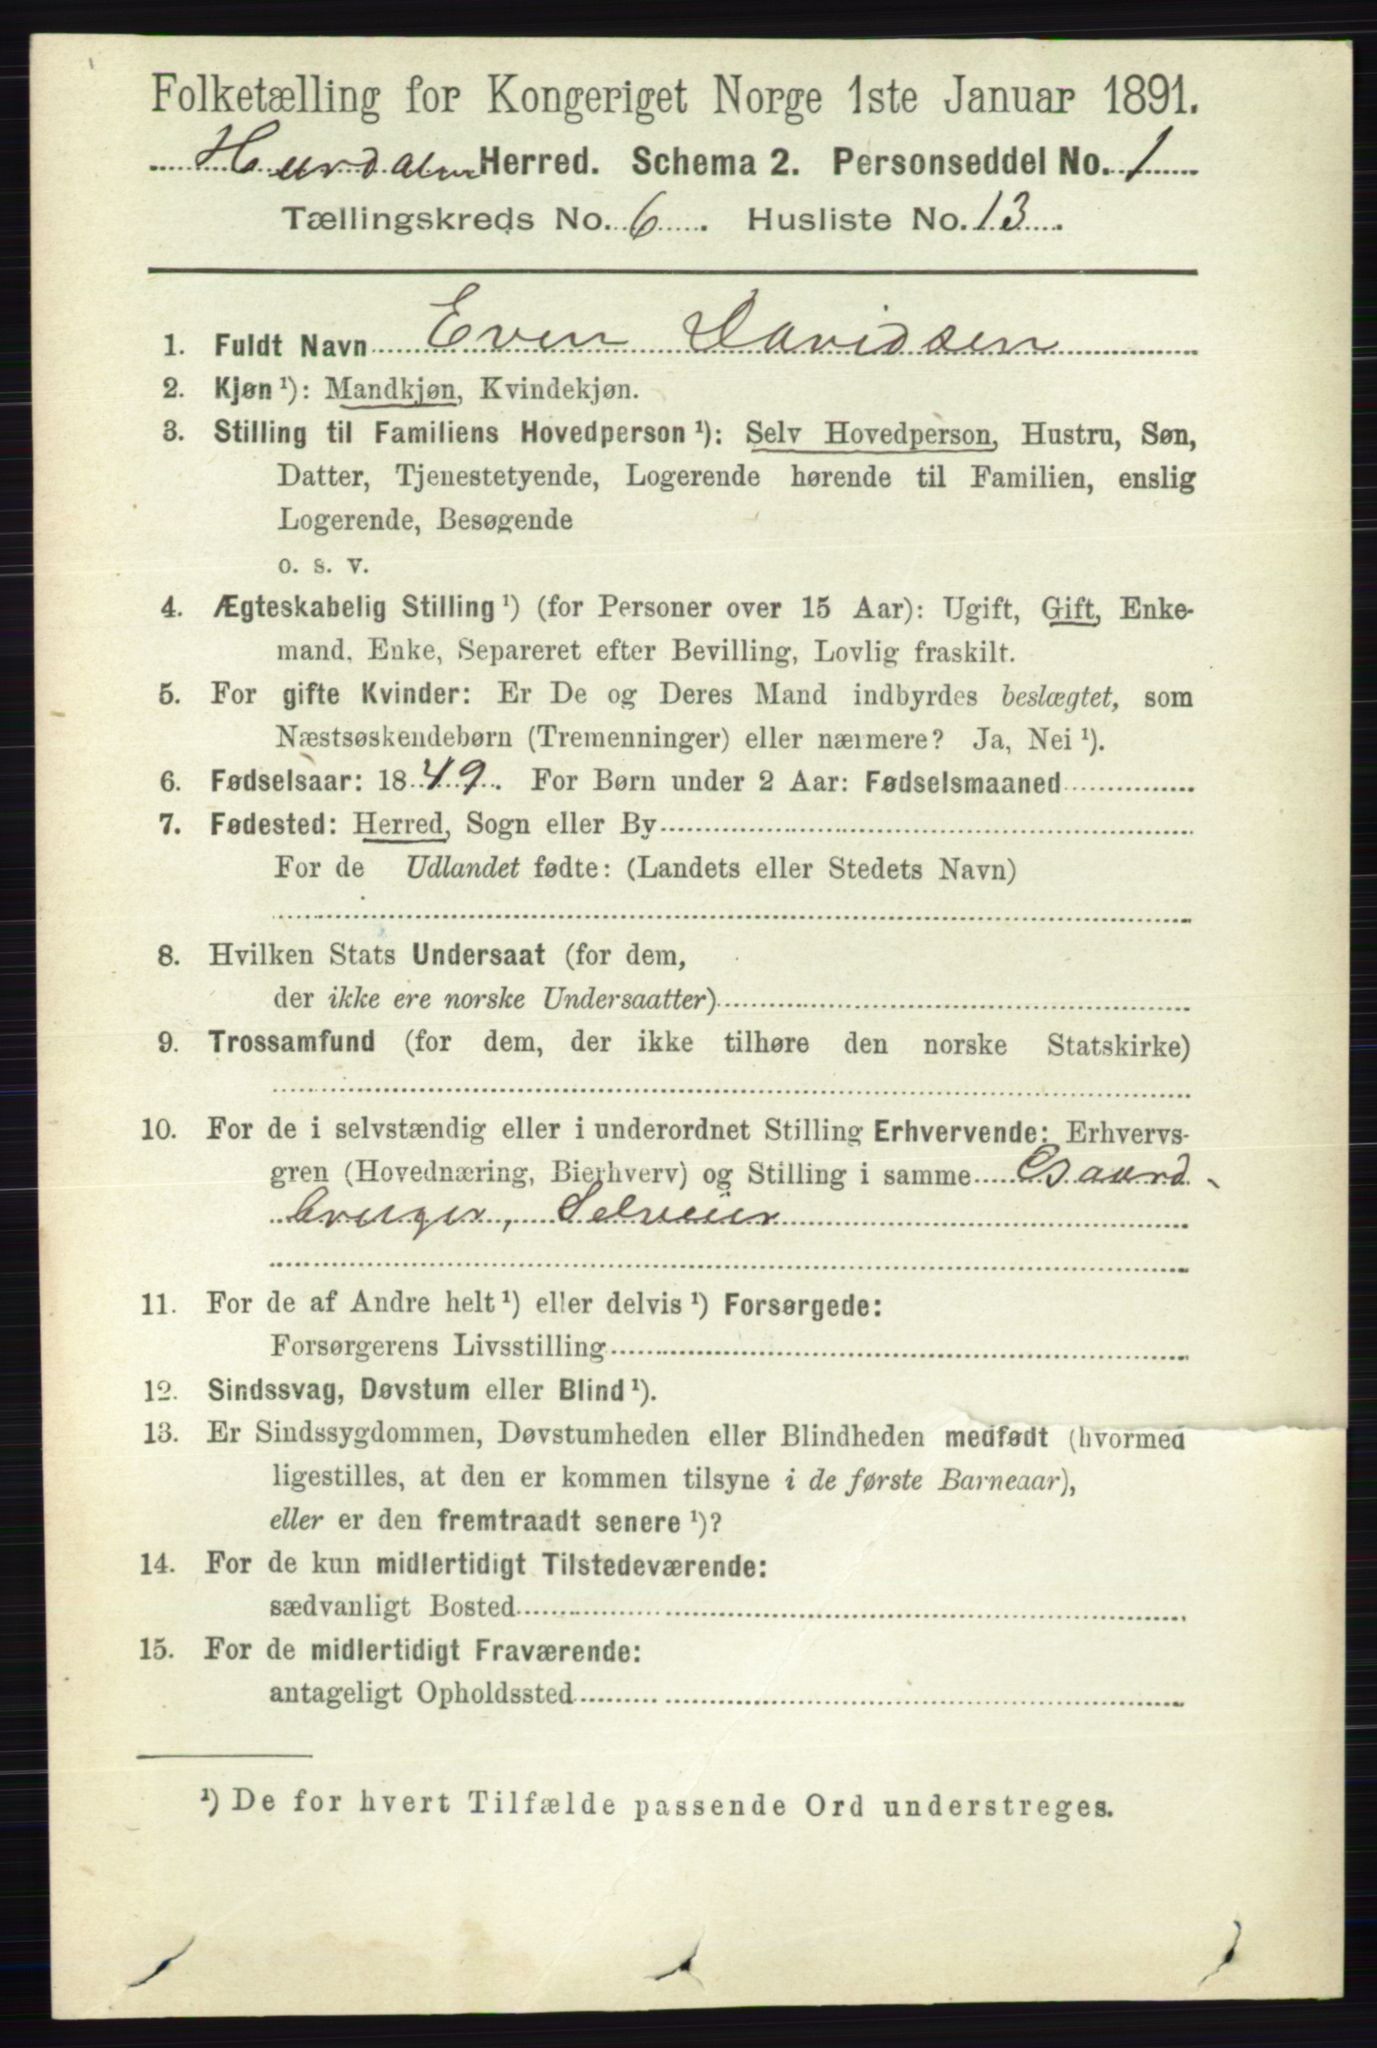 Folketælling for Kongeriget Norge 1ste Januar 1891.
Hurdalen Herred. Schema 2. Personseddel No. 1
Tællingskreds No. 6. Husliste No. 13.
1. Fuldt Navn Even Davidsen
2. Kjøn ¹): Mandkjøn, Kvindekjøn.
3. Stilling til Familiens Hovedperson ¹): Selv Hovedperson, Hustru, Søn,
Datter, Tjenestetyende, Logerende hørende til Familien, enslig
Logerende, Besøgende
o. s. v.
4. Ægteskabelig Stilling ¹) (for Personer over 15 Aar): Ugift, Gift, Enke-
mand, Enke, Separeret efter Bevilling, Lovlig fraskilt.
5. For gifte Kvinder: Er De og Deres Mand indbyrdes beslægtet, som
Næstsøskendebørn (Tremenninger) eller nærmere? Ja, Nei ¹).
6. Fødselsaar: 1849. For Børn under 2 Aar: Fødselsmaaned
7. Fødested: Herred, Sogn eller By
For de Udlandet fødte: (Landets eller Stedets Navn)
8. Hvilken Stats Undersaat (for dem,
der ikke ere norske Undersaatter)
9. Trossamfund (for dem, der ikke tilhøre den norske Statskirke)
10. For de i selvstændig eller i underordnet Stilling Erhvervende: Erhvervs-
gren (Hovednæring, Bierhverv) og Stilling i samme Gaard-
bruger, Selveier
11. For de af Andre helt ¹) eller delvis ¹) Forsørgede:
Forsørgerens Livsstilling
12. Sindssvag, Døvstum eller Blind ¹).
13. Er Sindssygdommen, Døvstumheden eller Blindheden medfødt (hvormed
ligestilles, at den er kommen tilsyne i de første Barneaar),
eller er den fremtraadt senere ¹)?
14. For de kun midlertidigt Tilstedeværende:
sædvanligt Bosted
15. For de midlertidigt Fraværende:
antageligt Opholdssted
¹) De for hvert Tilfælde passende Ord understreges.